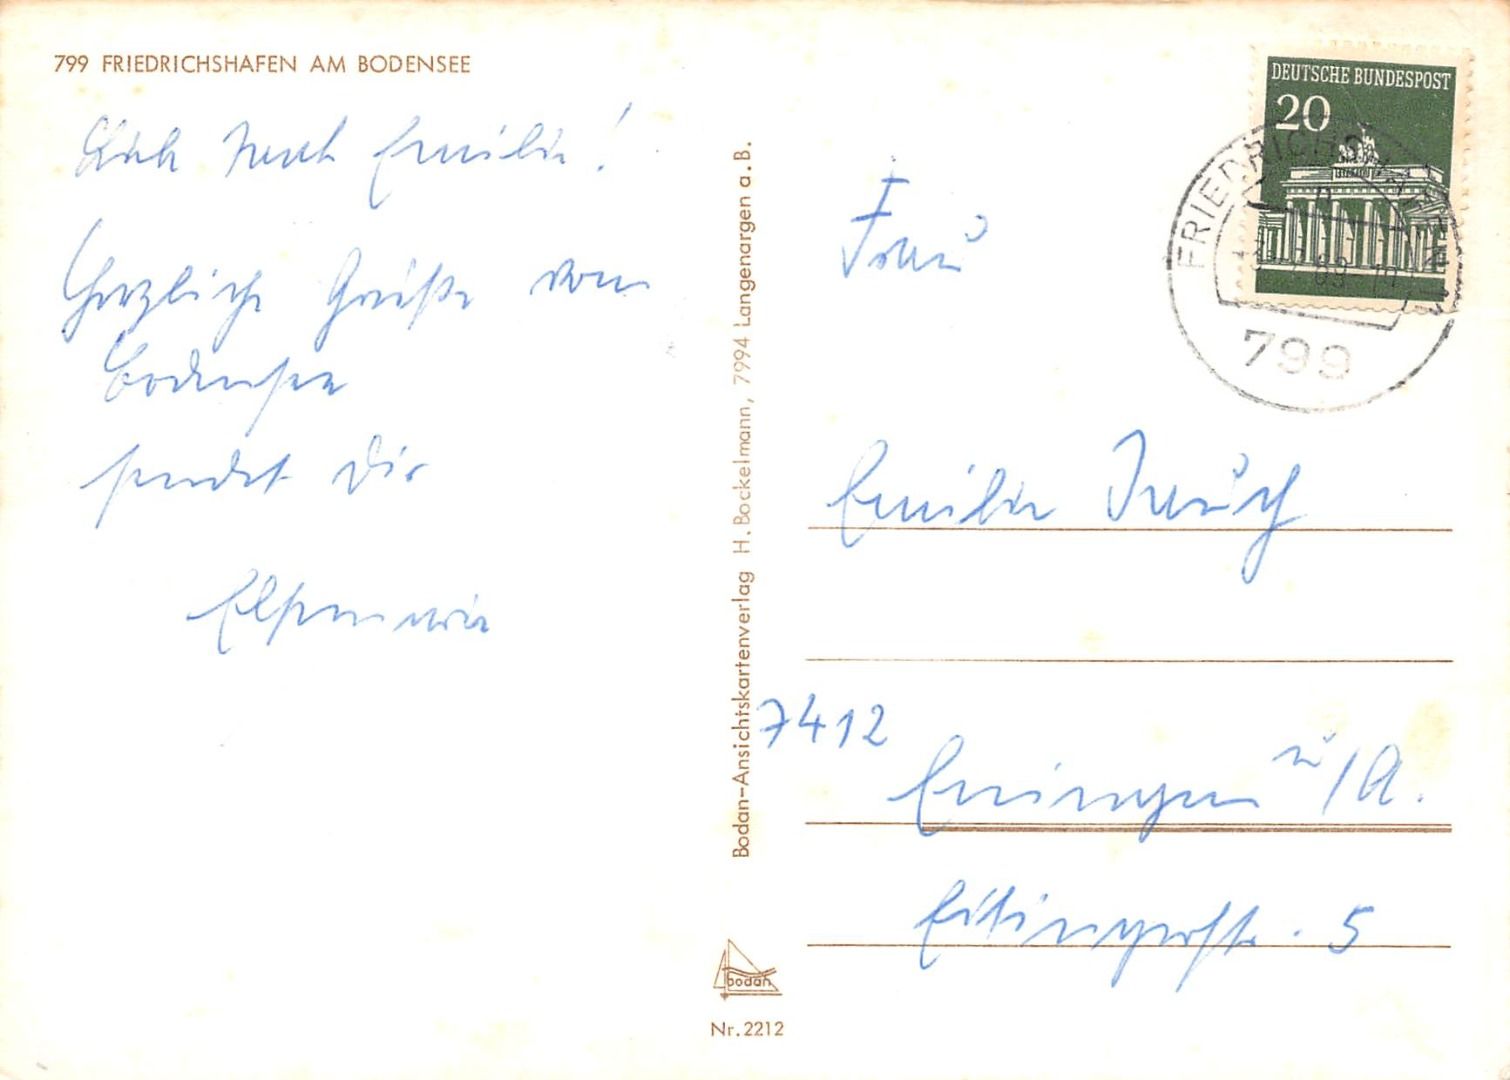 799 FRIEDRICHSHAFEN AM BODENSEE
Emilie!
Herzliche Grüße vom
Bodensee
sendet Dir
DEUTSCHE BUNDESPOST
20
FRIEDRICHSHAFEN
799
Frau
Emilie
7412
Eningen u/A.
Eitlingerstr. 5
Bodan-Ansichtskartenverlag H. Bockelmann, 7994 Langenargen a. B.
bodan
Nr. 2212